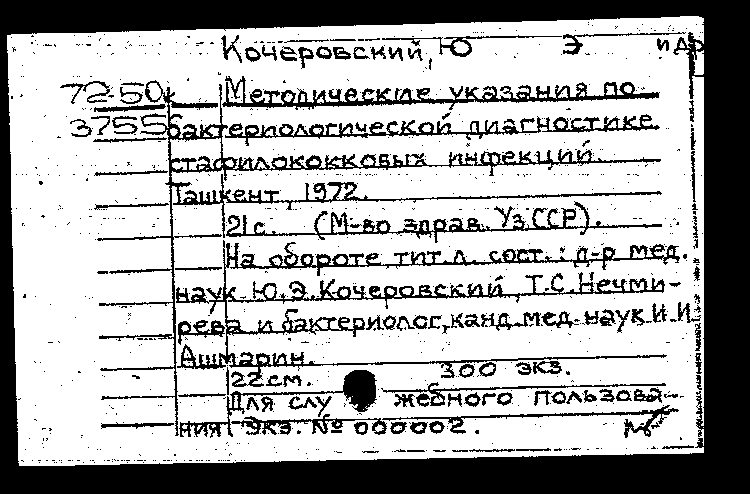 Кочеровский, Ю Э и др
72-50 Методические указания по
3755 бактериологической диагностике
стафилококковых инфекций.
Ташкент, 1972.
21 с. (М-во здрав. УзССР).
На обороте тит. л. сост.: д-р мед.
наук Ю.Э. Кочеровский, Т.С. Нечми-
рева и бактериолог, канд. мед. наук И.И.
Ашмарин.
22 см. 300 экз.
Для слу жебного пользова-
ния Экз. № 000002.